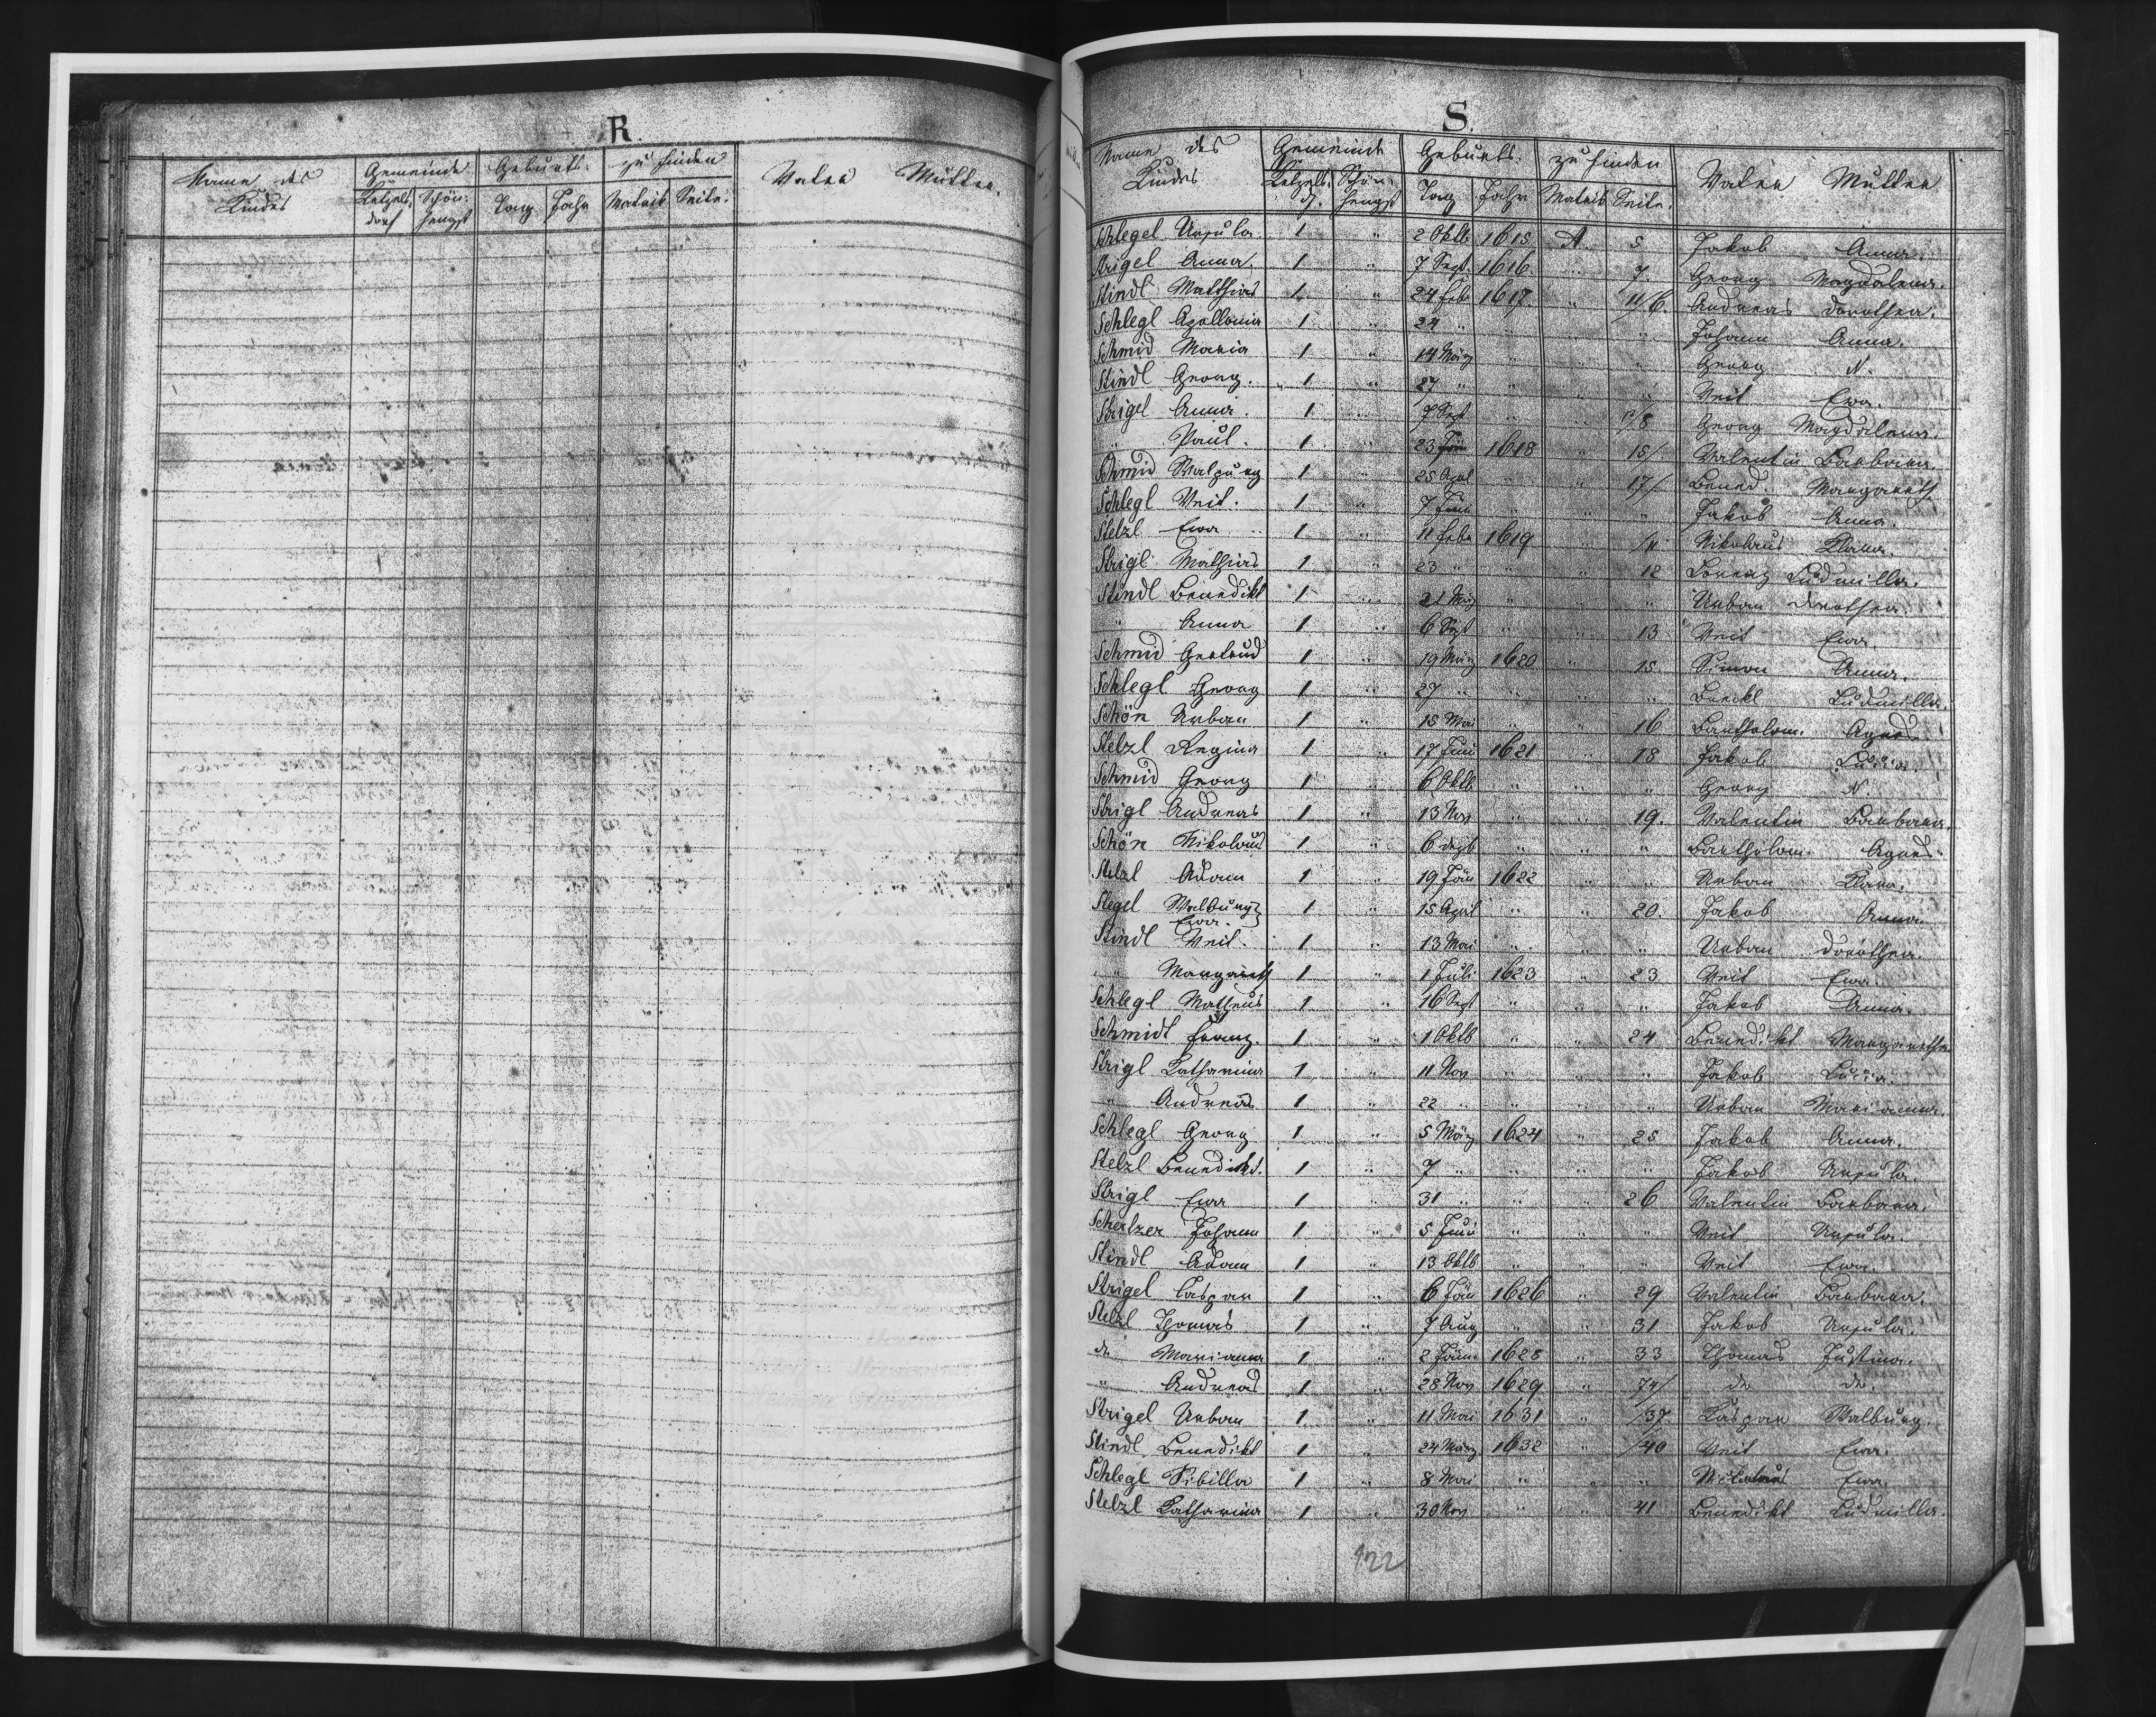 R.
Name des Kindes
Gemeinde
Ketzels- dorf
Schön- hengst
Geburts-
Tag
Jahr
zu finden
Matrik
Seite.
Vater
Mutter.
S.
Name des Kindes
Gemeinde
Ketzels- d.
Schön- hengst
Geburts-
Tag
Jahr
zu finden
Matrik
Seite.
Vater
Mutter
Schlegel Ursula. 1 " 2 Oktb 1615 A. 5 Jakob Anna.
Strigel Anna. 1 " 7 Sept. 1616 " 7. Georg Magdalena.
Stindl Matthias 1. " 24 Feb 1617 " /6. Andreas Dorothea.
Schlegl Apollonia 1 " 24 " " " " Johann Anna.
Schmid Maria 1 " 14 März " " " Georg N.
Stindl Georg. 1 " 27 " " " " Veit Ewa.
Strigel Anna. 1 " 7 Sept " " /8 Georg Magdalena.
" Paul. 1 " 23 Jän 1618 " 15/ Valentin Barbara.
Schmid Walpurg 1 " 25 Apl " " 17/ Bened. Margareth
Schlegl Veit. 1 " 7 Juni " " " Jakob Anna.
Stelzl Ewa 1 " 11 Febr 1619 " Nikolaus Klara.
Strigl Mathias 1 " 23 " " " 12 Lorenz Ludmilla.
Stindl Benedikt 1 " 21 März " " " Urban Dorothea.
" Anna 1 " 6 Sept " " 13 Veit Ewa.
Schmid Gertrud 1 " 19 März 1620 " 15 Simon Anna.
Schlegl Georg 1 " 27 " " " " Ludmilla.
Schön Urban 1 " 15 Mai " " 16 Bartholom. Agnes.
Stelzl Regina 1 " 17 Juni 1621 " 18 Jakob Lucia.
Schmid Georg 1 " 6 Oktb " " " Georg N
Strigl Andreas 1 " 13 Nov " " 19. Valentin Barbara.
Schön Nikolaus 1 " 6 Dezb " " " Bartholom. Agnes.
Stelzl Adam 1 " 19 Jän 1622 " " Urban Klara.
Slegel Walburg Ewa. 1 " 15 April " " 20. Jakob Anna.
Stindl Veit. 1 " 13 Mai " " " Urban Dorothea.
" Margareth 1 " 1 Juli 1623 " 23 Veit Ewa.
Schlegl Matheus 1 " 16 Sept " " " Jakob Anna.
Schmidt Franz. 1 " 1 Oktb " " 24 Benedikt Margaretha
Strigl Katharina 1 " 11 Nov " " " Jakob Lucia.
" Andreas 1 " 22 " " " " Urban Marianna.
Schlegl Georg 1 " 5 März 1624 " 25 Jakob Anna.
Stelzl Benedikt. 1 " 7 " " " " Jakob Ursula.
Strigl Ewa 1 " 31 " " " 26 Valentin Barbara.
Schertzer Johann 1 " 5 Juni " " " Veit Ursula.
Stindl Adam 1 " 13 Oktb " " " Veit Ewa.
Strigel Caspar 1 " 6 Jän 1626 " 29 Valentin Barbara.
Stelzl Thomas 1 " 7 Aug " " 31 Jakob Ursula.
do Marianna 1 " 2 Jän. 1628 " 33 Thomas Justina.
" Andreas 1 " 28 Nov 1629 " 74/ do do.
Strigel Urban 1 " 11 Mai 1631 " /37. Caspar Walburg.
Stindl Benedikt 1 " 24 März 1632 " /40 Veit Ewa.
Schlegl Sibilla 1 " 8 Mai " " " Nikolaus Ewa.
Stelzl Katharina 1 " 30 Nov " " 41 Benedikt Ludmilla.
122